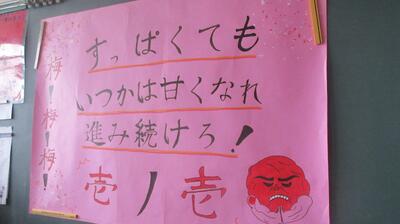 すっぱくても
いつかは甘くなれ
進み続けろ!
壱ノ壱
梅!梅!梅!